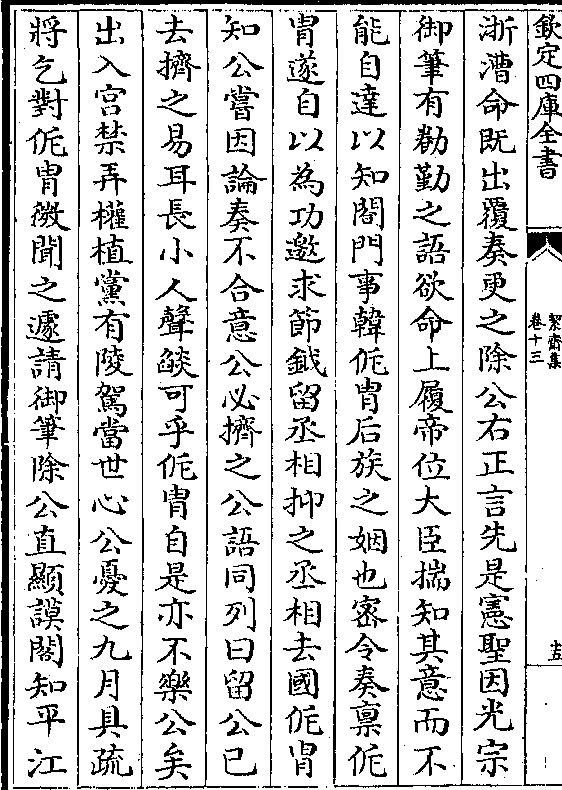 欽定四庫全書
絜齋集
卷十三
十五
浙漕命既出覆奏更之除公右正言先是憲聖因光宗
御筆有勌勤之語欲命上履帝位大臣揣知其意而不
能自達以知閤門事韓侂胄后族之姻也密令奏稟侂
胄遂自以為功邀求節鉞留丞相抑之丞相去國侂胄
知公嘗因論奏不合意公必擠之公語同列曰留公已
去擠之易耳長小人聲燄可乎侂胄自是亦不樂公矣
出入宫禁弄權植黨有陵駕當世心公憂之九月具疏
將乞對侂胄微聞之遽請御筆除公直顯謨閣知平江